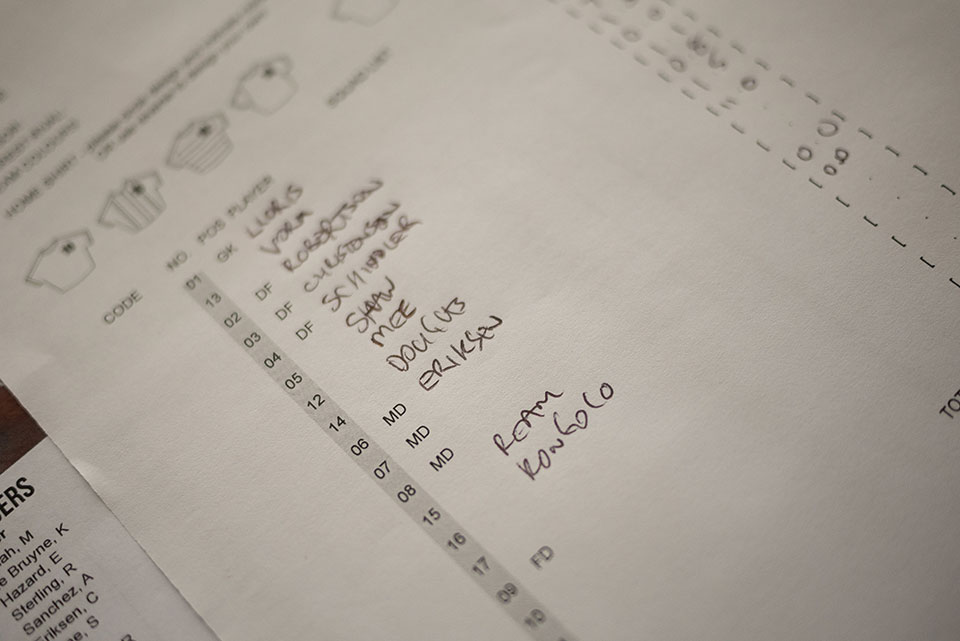 HOME SHIRT
SQUAD LIST
CODE
NO. POS PLAYER
01 GK LLORIS
13 VORM
02 DF ROBERTSON
03 DF CHRISTENSEN
04 DF SCHINDLER
05 SHAW
12 MEE
14 DOUGLAS
06 MD ERIKSEN
07 MD
08 MD
15 REAM
16 KONGOLO
17
09 FD
10
TOT
ERS
ah, M
e Bruyne, K
Hazard, E
Sterling, R
Sanchez, A
riksen, C
ne, S